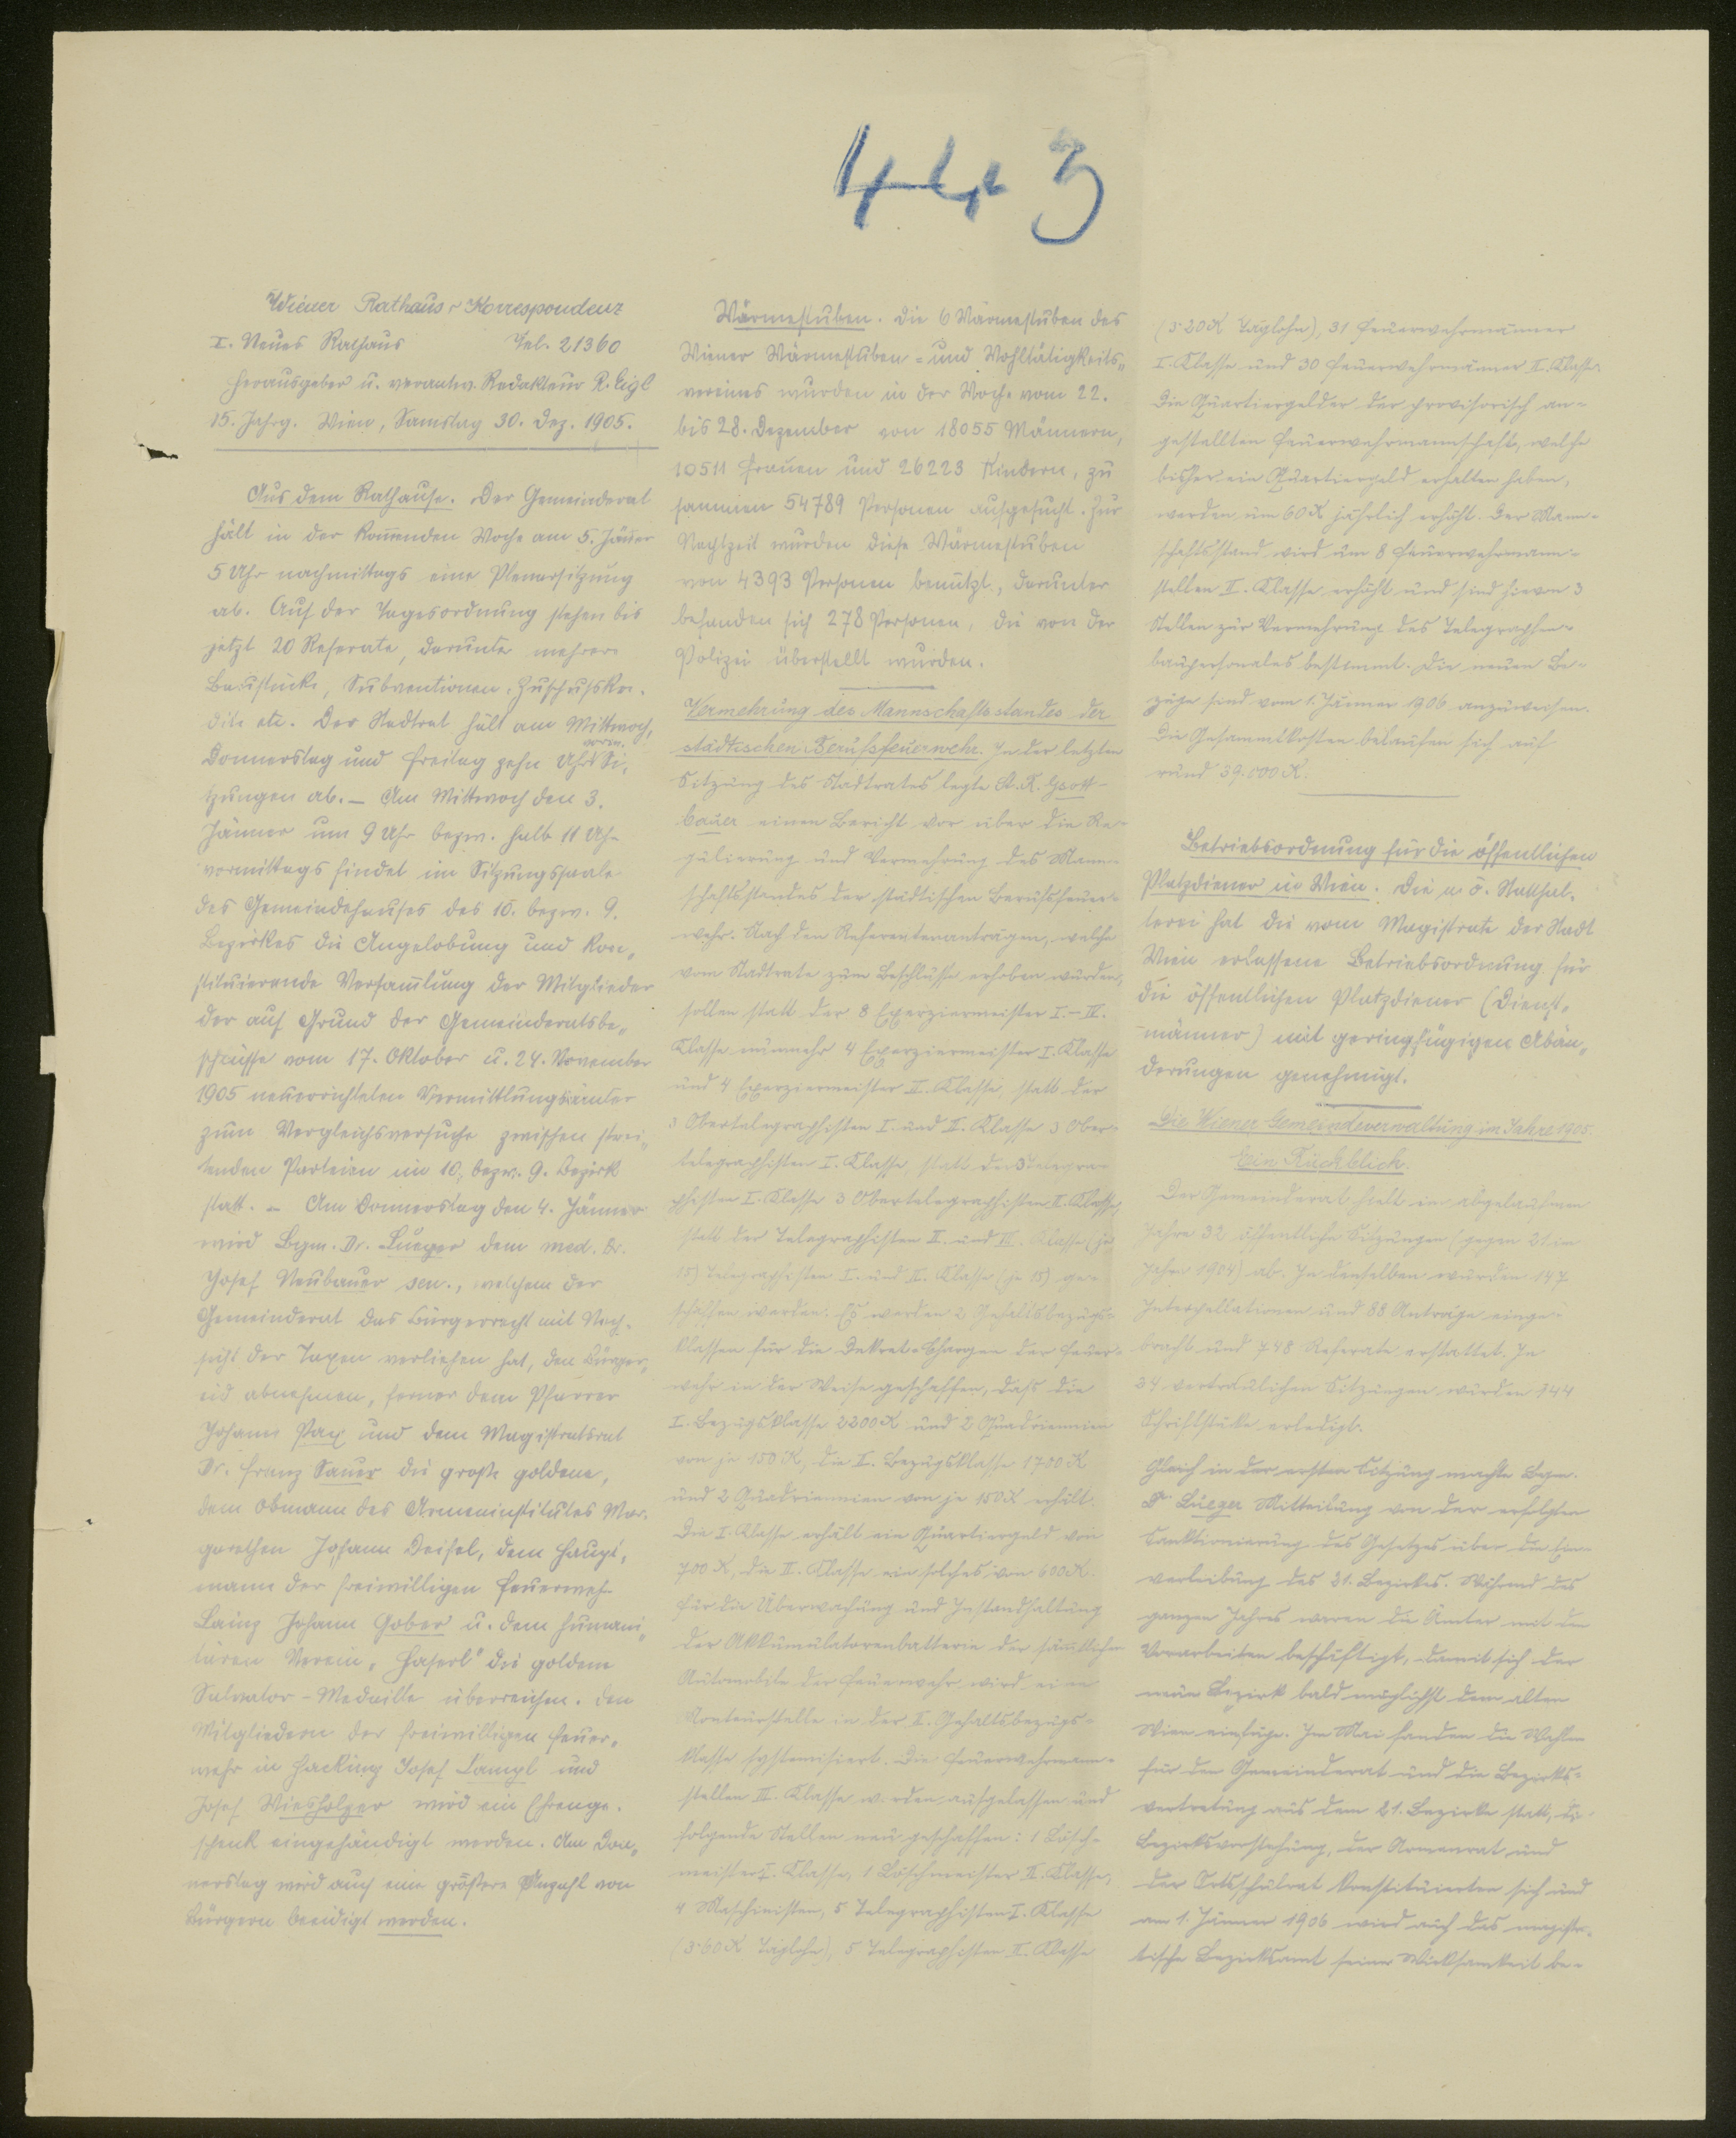 443
Wiener Rathaus-Korrespondenz
I. Neues Rathaus Tel. 21360
Herausgeber u. verantw. Redakteur R. Eigl
15. Jahrg. Wien, Samstag 30. Dez. 1905.
Aus dem Rathause. Der Gemeinderat
hält in der kom̅enden Woche am 5. Jän̅er
5 Uhr nachmittags eine Plenarsitzung
ab. Auf der Tagesordnung stehen bis
jetzt 20 Referate, darunter mehrere
Baustücke, Subventionen, Zuschußkre-
dite etc. Der Stadtrat hält am Mittwoch,
Donnerstag und Freitag zehn Uhr vorm. Si-
tzungen ab. – Am Mittwoch den 3.
Jänner um 9 Uhr bezw. halb 11 Uhr
vormittags findet im Sitzungssaale
des Gemeindehauses des 10. bezw. 9.
Bezirkes die Angelobung und kon-
stituierende Versam̅lung der Mitglieder
der auf Grund der Gemeinderatsbe-
schlüsse vom 17. Oktober u. 24. November
1905 neuerrichteten Vermittlungsämter
zum Vergleichsversuche zwischen strei-
tenden Parteien im 10. bezw. 9. Bezirk
statt. – Am Donnerstag den 4. Jänner
wird Bgm. Dr. Lueger dem med. Dr.
Josef Neubauer sen., welchem der
Gemeinderat das Bürgerrecht mit Nach-
sicht der Taxen verliehen hat, den Bürger-
eid abnehmen, ferner dem Pfarrer
Johann Pax und dem Magistratsrat
Dr. Franz Sauer die große goldene,
dem Obmann des Armeninstitutes Mar-
garethen Johann Deisel, dem Haupt-
mann der freiwilligen Feuerwehr
Lainz Johann Gober u. dem humani-
tären Verein „Haserl" die goldene
Salvator-Medaille überreichen. Den
Mitgliedern der freiwilligen Feuer-
wehr in Hacking Josef Lampl und
Josef Wiesholzer wird ein Ehrenge-
schenk eingehändigt werden. Am Don-
nerstag wird auch eine größere Anzahl von
Bürgern beeidigt werden.
Wärmestuben. Die 6 Wärmestuben des
Wiener Wärmestuben- und Wohltätigkeits-
vereines wurden in der Woche vom 22.
bis 28. Dezember von 18055 Männern,
10511 Frauen und 26223 Kindern, zu
sammen 54789 Personen aufgesucht. Zur
Nachtzeit wurden diese Wärmestuben
von 4393 Personen benützt, darunter
befanden sich 278 Personen, die von der
Polizei überstellt wurden.
Vermehrung des Mannschaftsstandes der
städtischen Berufsfeuerwehr. In der letzten
Sitzung des Stadtrates legte St. R. Gsott-
bauer einen Bericht vor über die Re-
gulierung und Vermehrung des Mann-
schaftsstandes der städtischen Berufsfeuer-
wehr. Nach den Referentenanträgen, welche
vom Stadtrate zum Beschlusse erhoben wurden,
sollen statt der 8 Exerziermeister I.–IV.
Klasse nunmehr 4 Exerziermeister I. Klasse
und 4 Exerziermeister II. Klasse, statt der
3 Obertelegraphisten I. und II. Klasse 3 Ober-
telegraphisten I. Klasse, statt der 3 Telegra-
phisten I. Klasse 3 Obertelegraphisten II. Klasse,
statt der Telegraphisten II. und III. Klasse (je
15) Telegraphisten I. und II. Klasse (je 15) ge-
schaffen werden. Es werden 2 Gehaltsbezugs-
klassen für die Dekret-Chargen der Feuer-
wehr in der Weise geschaffen, daß die
I. Bezugsklasse 2200 K und 2 Quadriennien
von je 150 K, die II. Bezugsklasse 1700 K
und 2 Quadriennien von je 150 K erhält.
Die I. Klasse erhält ein Quartiergeld von
700 K, die II. Klasse ein solches von 600 K.
Für die Überwachung und Instandhaltung
der Akkumulatorenbatterie der sämtlichen
Automobile der Feuerwehr wird eine
Monteurstelle in der II. Gehaltsbezugs-
klasse systemisiert. Die Feuerwehrmann-
stellen III. Klasse werden aufgelassen und
folgende Stellen neu geschaffen: 1 Lösch-
meister I. Klasse, 1 Löschmeister II. Klasse,
4 Maschinisten, 5 Telegraphisten I. Klasse
(3·60 K Taglohn), 5 Telegraphisten II. Klasse
(3·20 K Taglohn), 31 Feuerwehrmänner
I. Klasse und 30 Feuerwehrmänner II. Klasse.
Die Quartiergelder der provisorisch an-
gestellten Feuerwehrmannschaft, welche
bisher ein Quartiergeld erhalten haben,
werden um 60 K jährlich erhöht. Der Mann-
schaftsstand wird um 8 Feuerwehrmann-
stellen II. Klasse erhöht und sind hievon 3
Stellen zur Vermehrung des Telegraphen-
baupersonales bestimmt. Die neuen Be-
züge sind vom 1. Jänner 1906 anzuweisen.
Die Gesammtkosten belaufen sich auf
rund 39.000 K.
Betriebsordnung für die öffentlichen
Platzdiener in Wien. Die n. ö. Statthal-
terei hat die vom Magistrate der Stadt
Wien erlassene Betriebsordnung für
die öffentlichen Platzdiener (Dienst-
männer) mit geringfügigen Abän-
derungen genehmigt.
Die Wiener Gemeindeverwaltung im Jahre 1905.
Ein Rückblick.
Der Gemeinderat hielt im abgelaufenen
Jahre 32 öffentliche Sitzungen (gegen 21 im
Jahre 1904) ab. In denselben wurden 147
Interpellationen und 88 Anträge einge-
bracht und 748 Referate erstattet. In
24 vertraulichen Sitzungen wurden 144
Schriftstücke erledigt.
Gleich in der ersten Sitzung machte Bgm.
Dr. Lueger Mitteilung von der erfolgten
Sanktionierung des Gesetzes über die Ein-
verleibung des 21. Bezirkes. Während des
ganzen Jahres waren die Ämter mit den
Vorarbeiten beschäftigt, damit sich der
neue Bezirk bald möglichst dem alten
Wien einfüge. Im Mai fanden die Wahlen
für den Gemeinderat und die Bezirks-
vertretung aus dem 21. Bezirke statt, die
Bezirksvorstehung, der Armenrat und
der Ortsschulrat konstituierten sich und
am 1. Jänner 1906 wird auch das magistra-
tische Bezirksamt seine Wirksamkeit be-